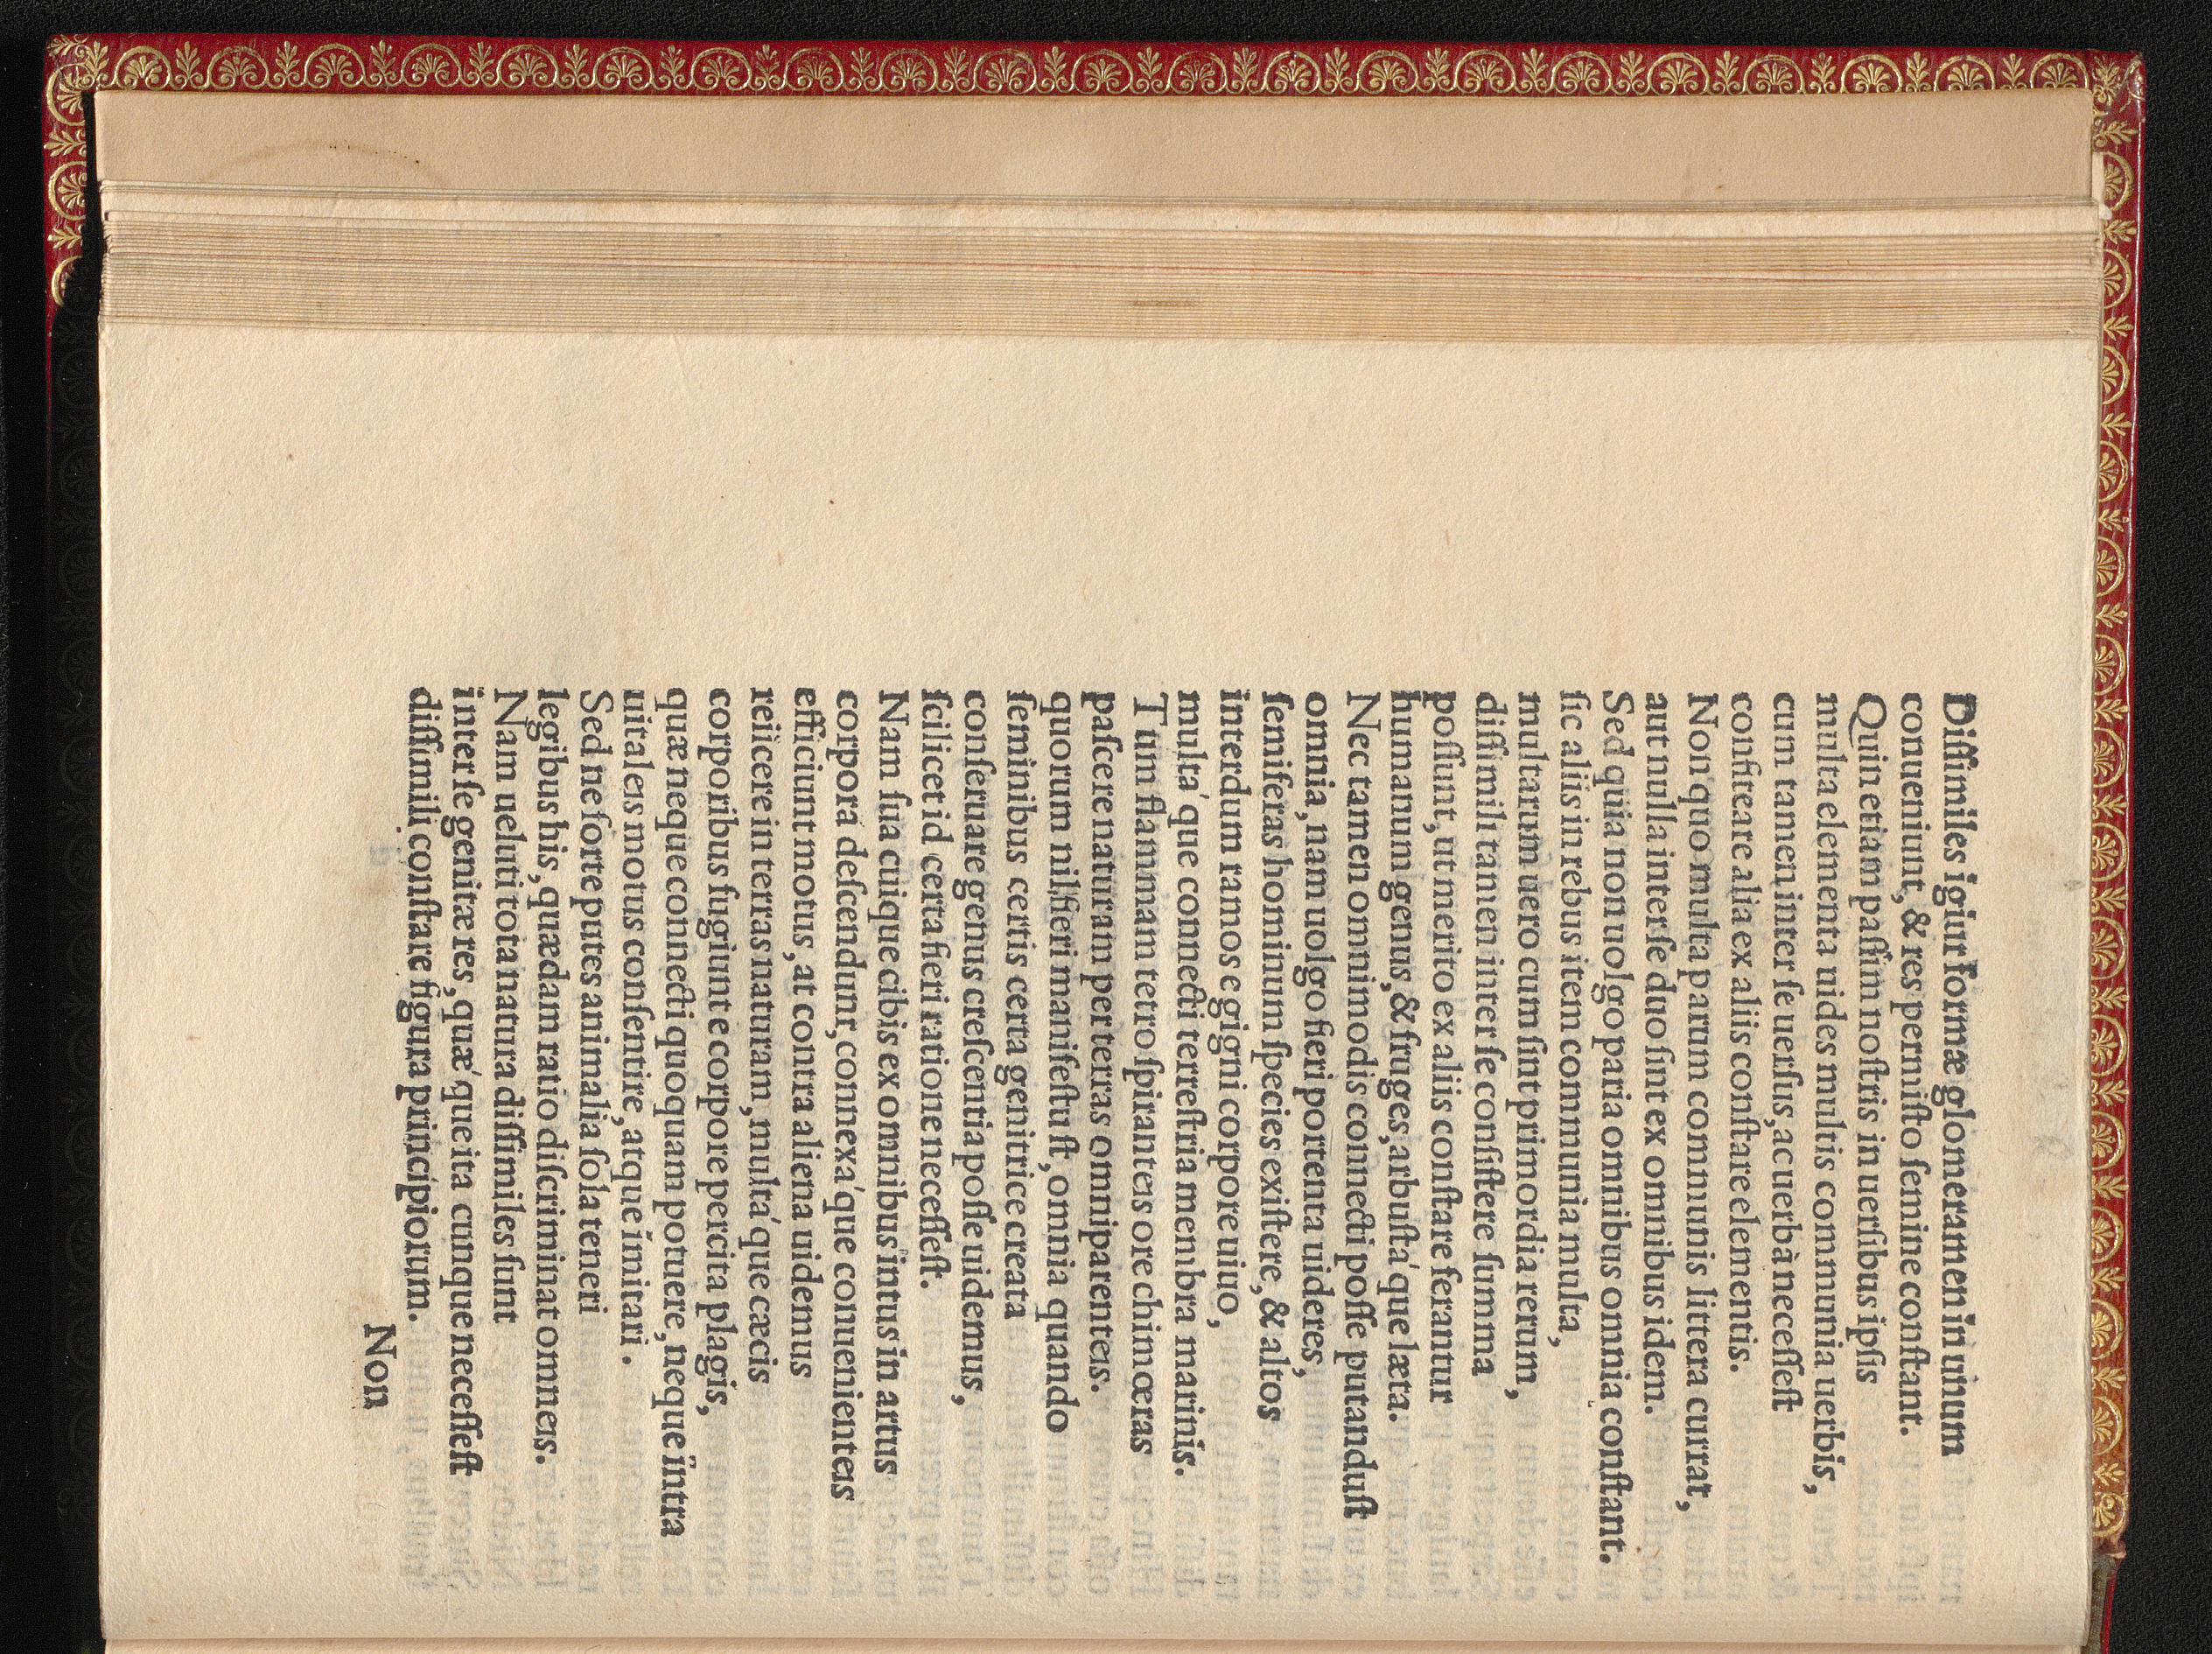 Diſſimiles igiur formæ glomeramen in unum
conueniunt, & res permiſto ſemine conſtant.
Quin etiam paſſim noſtris in uerſibus ipſis
multa elementa uides multis communia uerbis,
cum tamen inter ſe uerſus, ac uerbà neceſſeſt
confiteare alia ex aliis conſtare elementis.
Non quo multa parum communis littera currat,
aut nulla inter ſe duo ſint ex omnibus idem.
Sed quia non uolgo paria omnibus omnia conſtant.
ſic aliis in rebus item communia multa,
multarum uero cum ſint primordia rerum,
diſſimili tamen inter ſe conſiſtere ſumma
poſſunt, ut merito ex aliis conſtare ferantur
humanum genus, & fruges, arbuſta' que læta.
Nec tamen omnimodis connecti poſſe putanduſt
omnia, nam uolgo fieri portenta uideres,
ſemiferas hominum ſpecies exiſtere, & altos
interdum ramos e gigni corpore uiuo,
multa' que connecti terreſtria membra marinis.
Tum flammam tetro ſpiranteis ore chimœras
paſcere naturam per terras omniparenteis.
quorum nil fieri manifeſtuſt, omnia quando
ſeminibus certis certa genitrice creata
conſeruare genus creſcentia poſſe uidemus,
ſcilicet id certa fieri ratione neceſſeſt.
Nam ſua cuique cibis ex omnibus intus in artus
corpora deſcendunr, connexa' que conuenienteis
efficiunt motus, at contra aliena uidemus
reiicere in terras naturam, multa' que cæcis
corporibus fugiunt e corpore percita plagis,
quæ neque connecti quoquam potuere, neque intra
uitaleis motus conſentire, atque imitari.
Sed ne forte putes animalia ſola teneri
legibus his, quædam ratio diſcriminat omneis.
Nam ueluti tota natura diſſimiles ſunt
inter ſe genitæ res, quæ' que ita cunque neceſſeſt
diſſimili conſtare figura principiorum.
Non